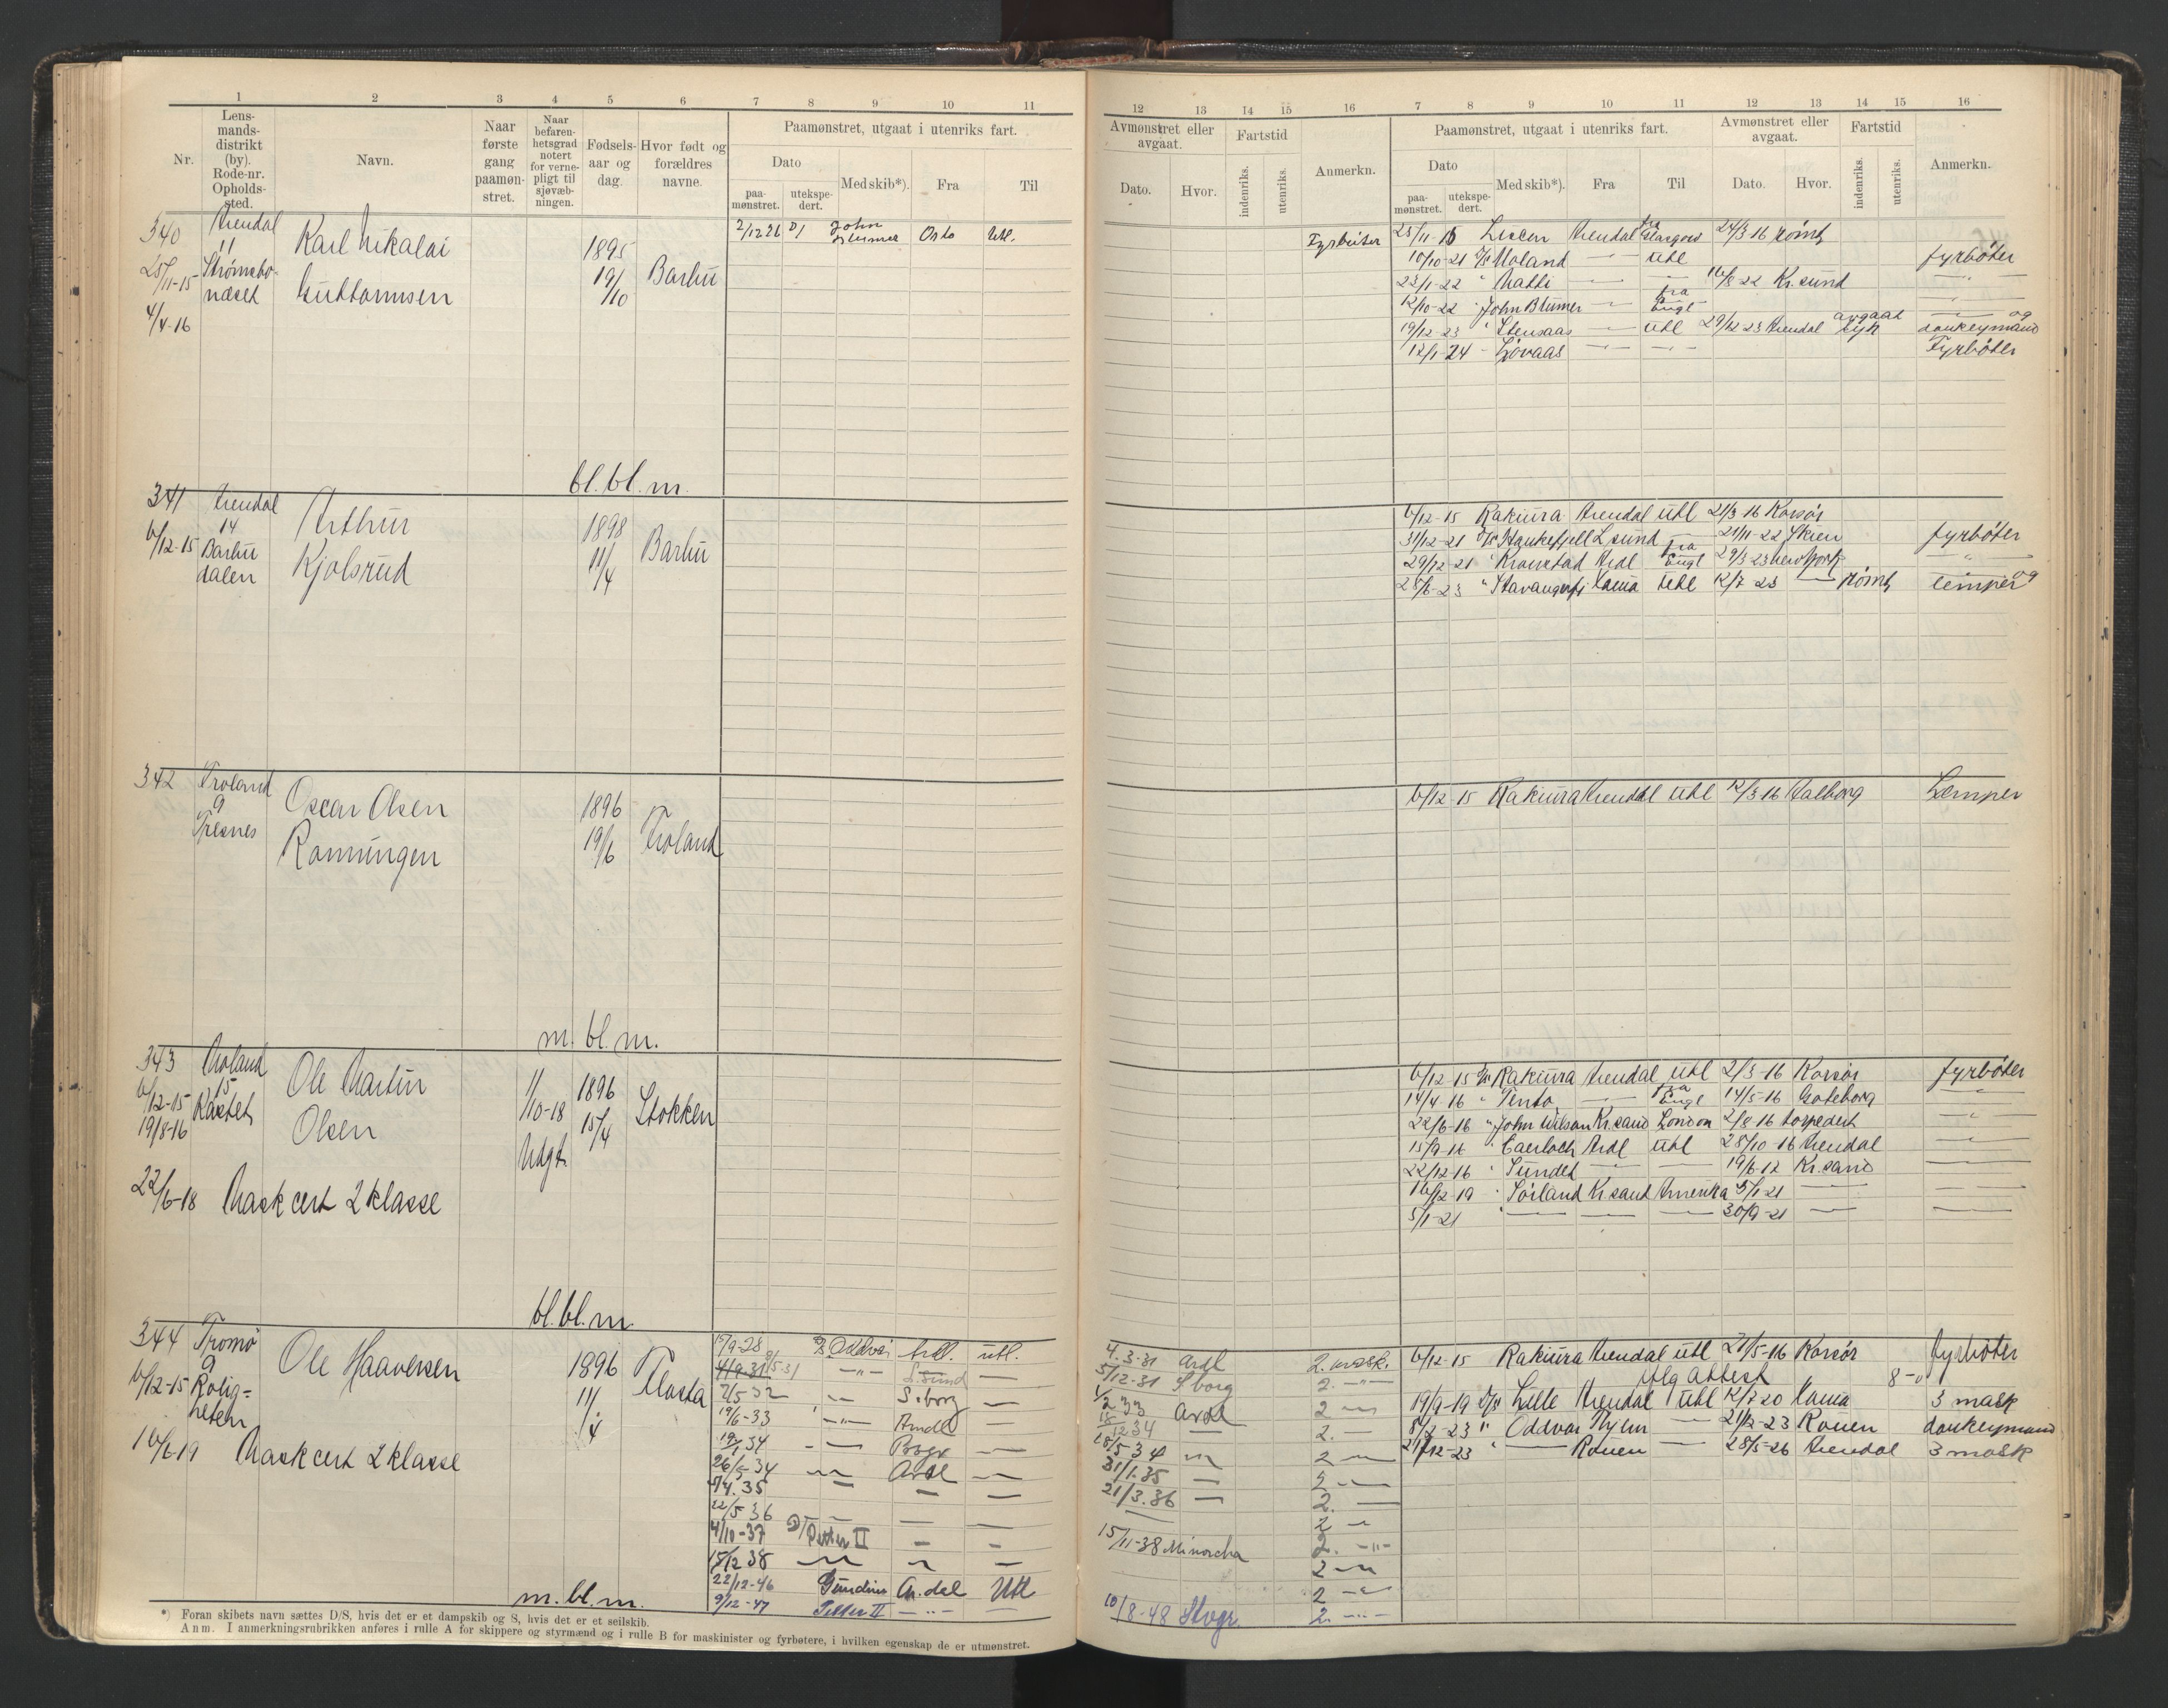 1 2 3 4 5 6 7 8 9 10 11
Nr.
Lens-
mands-
distrikt
(by).
Rode-nr.
Opholds-
sted.
Navn.
Naar
første
gang
paamøn-
stret.
Naar
befaren-
hetsgrad
notert
for verne-
pligt til
sjøvæb-
ningen.
Fødsels-
aar og
dag.
Hvor født og
forældres
navne.
Paamønstret, utgaat i utenriks fart.
Dato
paa-
mønstret.
utekspe-
dert.
Med skib*).
Fra
Til
340 Arendal
11
25/11-15 Strømsbo-
næset
4/4-16
Karl Nikolai
Guttormsen
1895
19/10
Barbu
2/12 26 D/ John Blumer Oslo Utl.
bl. bl. m.
341 Arendal
14
6/12-15 Barbu
dalen
Arthur
Kjolsrud
1898
11/4
Barbu
342 Froland
9
Tresnes
Oscar Olsen
Ronningen
1896
19/6
Froland
m. bl. m.
343 Moland
15
6/12-15
19/8-16
Ole Martin
Olsen
1/10-18
Udgt.
1896
15/4
Stokken
22/6-18 Mask cert 2 klasse
bl. bl. m.
344 Tromø
9
6/12-15 Rolig-
heten
Ole Haaversen
1896
11/4
Flosta
16/6 19 Mask cert 2 klasse
15/9-28 D/S Oddvar Ardl. utl.
S.sund —
2/5-32 —"— S.borg —
19/6-33 —"— Arndl —
34 — — —
26/5-34 —"— Ardl —
4. 35 — — —
22/5 36 — — —
4/10-37 D/ Petter II — —
15/12 38 —"— —"— —
22/12-46 Gundine A.dal Utl
9/12-47 Petter II —"— —
m. bl. m.
*) Foran skibets navn sættes D/S, hvis det er et dampskib og S, hvis det er et seilskib.
Anm. I anmerkningsrubrikken anføres i rulle A for skippere og styrmænd og i rulle B for maskinister og fyrbøtere, i hvilken egenskap de er utmønstret.
12 13 14 15 16 7 8 9 10 11 12 13 14 15 16
Avmønstret eller
avgaat.
Dato.
Hvor.
Fartstid
indenriks.
utenriks.
Anmerkn.
Paamønstret, utgaat i utenriks fart.
Dato
paa-
mønstret.
utekspe-
dert.
Med skib*).
Fra
Til
Avmønstret eller
avgaat.
Dato.
Hvor.
Fartstid
indenriks.
utenriks.
Anmerkn.
Fyrbøter
25/11-15 Arendal fra Glasgow 24/3-16 rømt
10/10-21 D/S Moland —"— utl fyrbøter
23/1-22 " —"— — 16/8-22 Kr.sund —"—
12/10-22 " John Blumer —"— fra Engl —"—
19/12-23 " Stensaas —"— utl 29/12 23 Arendal avgaat syk —"— og donkeymand
12/1-24 — Lovaas —"— —"— Fyrbøter
6/12-15 Rakiura Arendal utl 21/3-16 Korsør
31/12-21 D/S Haukefjell L.sund 21/11-22 Skien fyrbøter
29/12-21 " Kronstad Ardl fra Engl 29/3-23 New York —"—
28/6-23 " Stavangerfj utl 12/7 23 — rømt og lemper
6/12 15 Rakiura Arendal utl 12/3-16 Aalborg Lemper
6/12 15 D/S Rakiura Arendal utl 2/3-16 Korsør fyrbøter
14/4-16 " Tento —"— fra Engl 14/5-16 Gøteborg —"—
22/6-16 " John Wilson Kr.sand London 2/8-16 torpedert —"—
15/9-16 " Caerloch Ardl utl 28/10-16 Arendal —"—
22/12-16 " Sundet — — 19/6-17 Kr.sand —
16/12-19 " Sørland Kr sand Amerika 5/1-21 — —
5/1-21 " — — — 30/9-21 — —
4.3-31 Ardl 2. mask.
5/12-31 S borg 2. —"—
33 Ardl 2 —"—
34 — 2. —
18/5 34 —"— 2 —"—
31/1.35 — 2. —
21/3.36 — 2. —
2 —
2. —"—
15/11-38 Minorcha 2 —"—
2 —"—
10/8-48 Stvgr. 2. —"—
6/12-15 Rakiura Arendal utl 21/5-16 Korsør fyrbøter
iflg attest 8-0
19/9-19 D/S Lille Arendal utl 12/7 20 3 mask
8/2-23 " Oddvar — 21/12-23 Rouen donkeymand
21/12-23 " — Rouen — 28/5-26 Arendal 3 mask